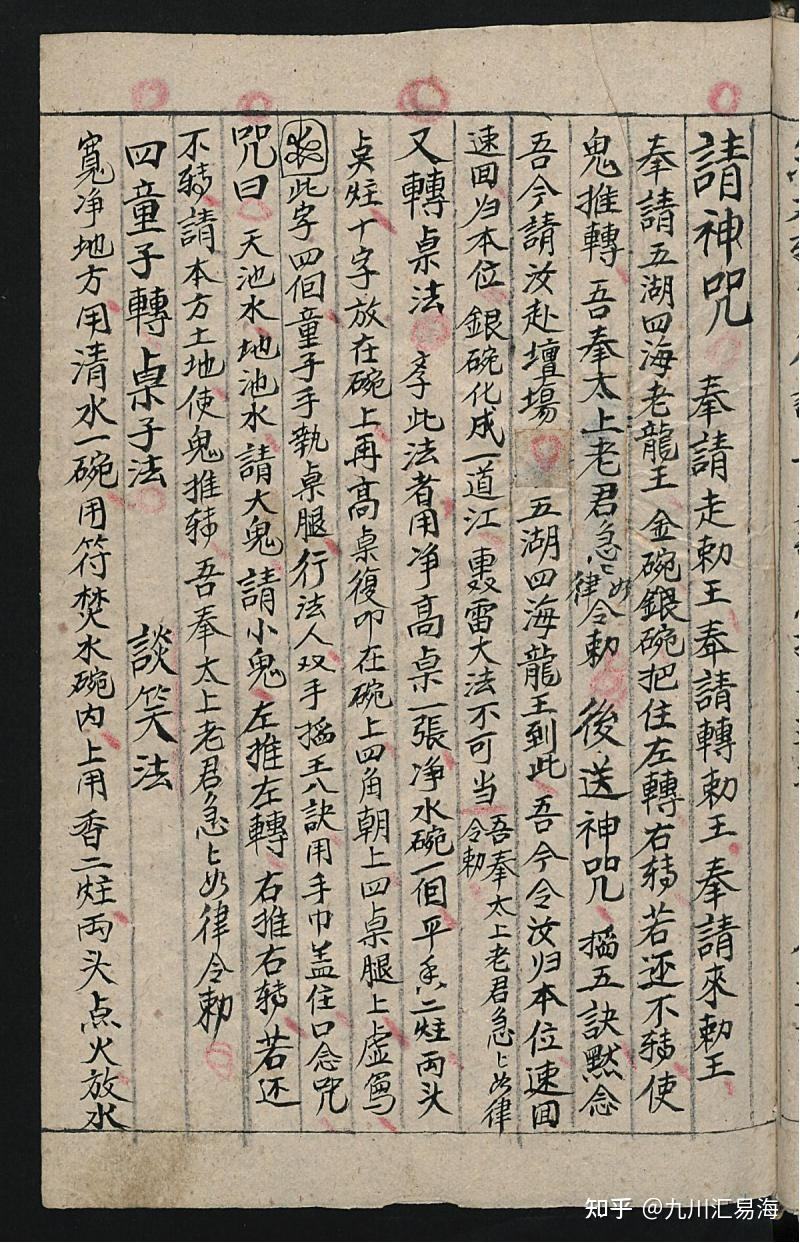 請神咒 奉請走勅王奉請轉勅王奉請來勅王
奉請五湖四海老龍王金碗銀碗把住左轉右轉若还不轉使
鬼推轉 吾奉太上老君急々如律令勅 後送神咒 搯五訣黙念
吾今請汝赴壇場 五湖四海龍王到此吾今令汝归本位速回
速回归本位銀碗化成一道江轟雷大法不可当吾奉太上老君急々如律令勅
又轉桌法 孛此法者用净高桌一張净水碗一個平香二炷两头
点炷十字放在碗上再高桌復叩在碗上四角朝上四桌腿上虚寫
此字四個童子手執桌腿行法人双手搯王八訣用手巾盖住口念咒
咒曰 天池水地池水請大鬼請小鬼左推左轉右推右转若还
不转請本方土地使鬼推转吾奉太上老君急々如律令勅
四童子轉桌子法 談笑法
寬净地方用清水一碗用符焚水碗内上用香二炷两头点火放水
知乎 @九川汇易海